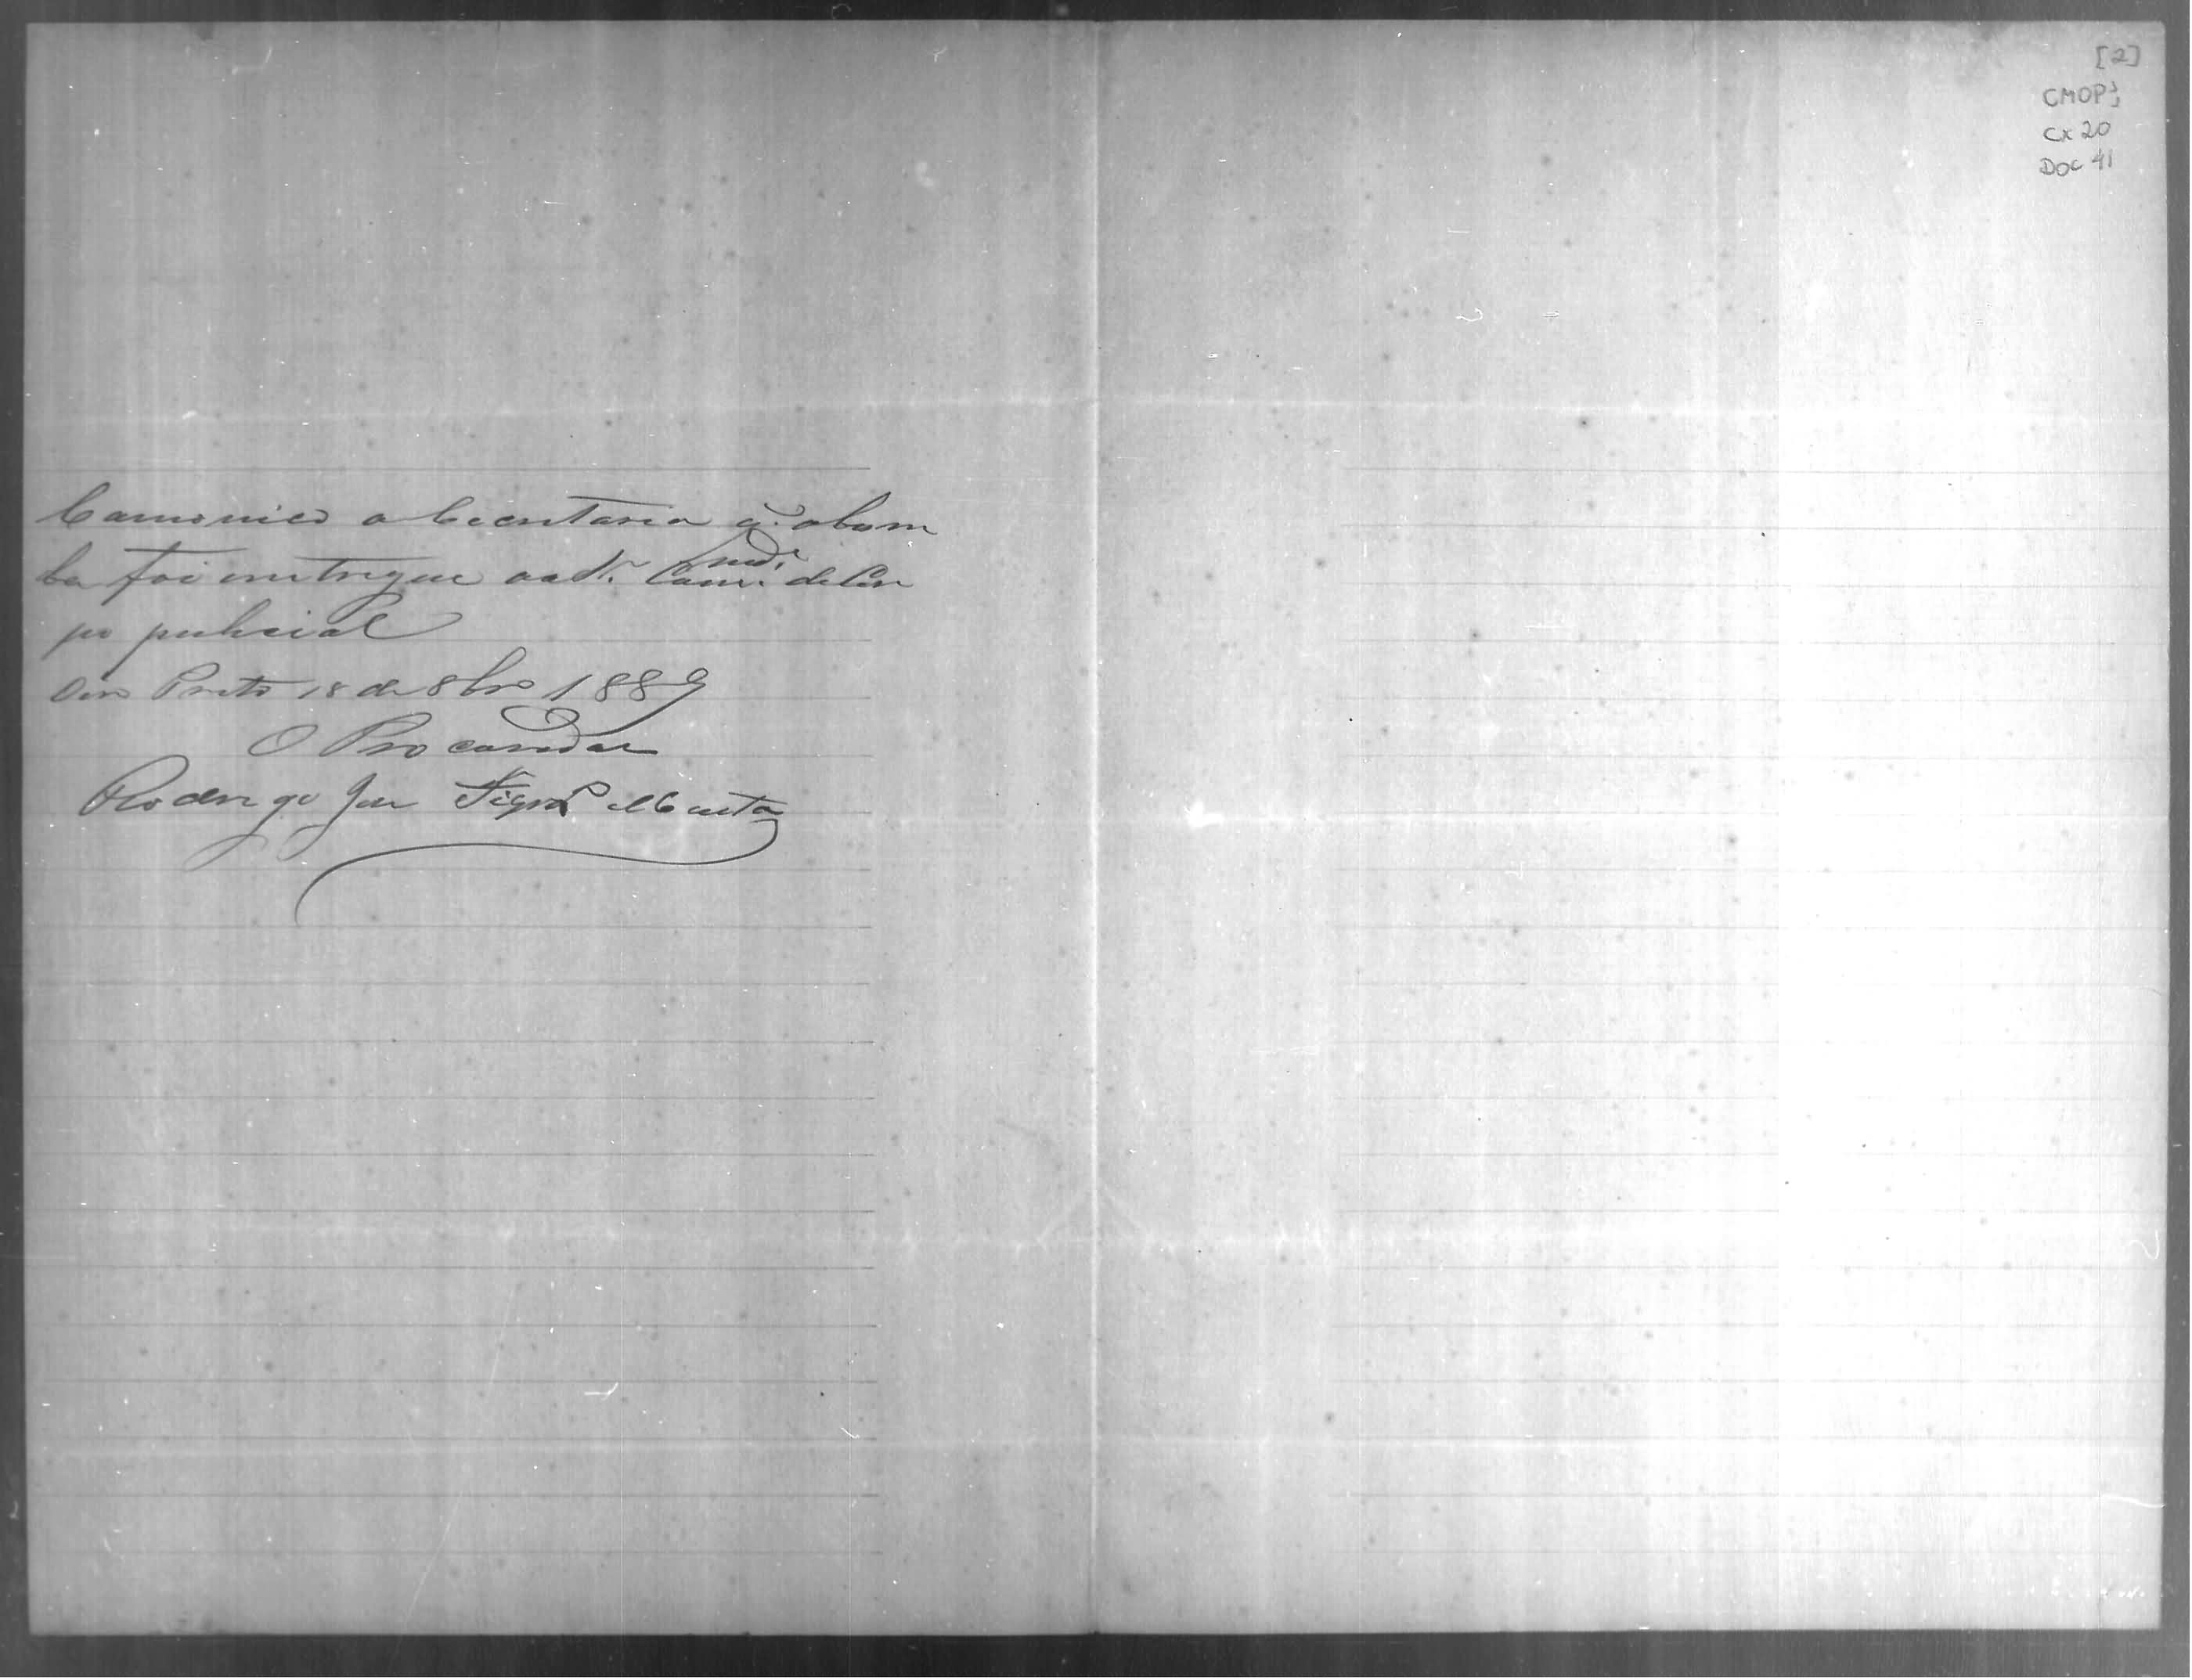 [2]
CMOP
Cx 20
DOC 41
Comonico a Secretaria q. abom
ba foi entregue ao Sr. Com.nd.e do Cor
po pulicial
Ouro Preto 18 de 8bro 1889
O Procurador
Rodrigo José Figrª